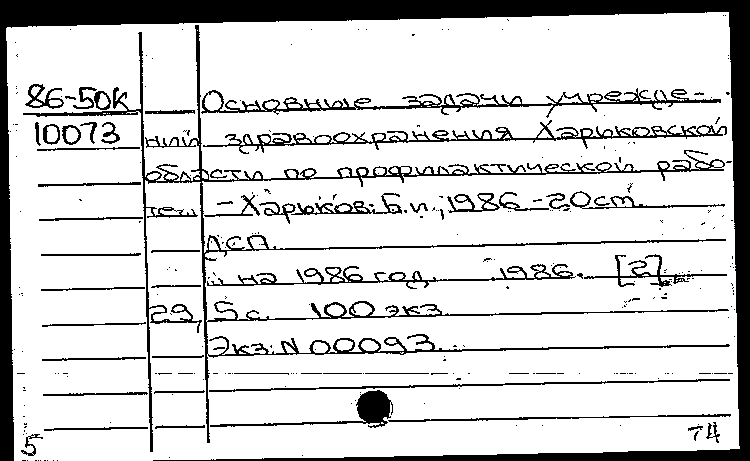 86-50К Основные задачи учрежде-
10073 ний здравоохранения Харьковской
области по профилактической рабо-
те... - Харьков: Б.и., 1986 - 20см.
ДСП.
... на 1986 год. 1986. [2],
29, 5 с. 100 экз
Экз: N 00093.
5 74